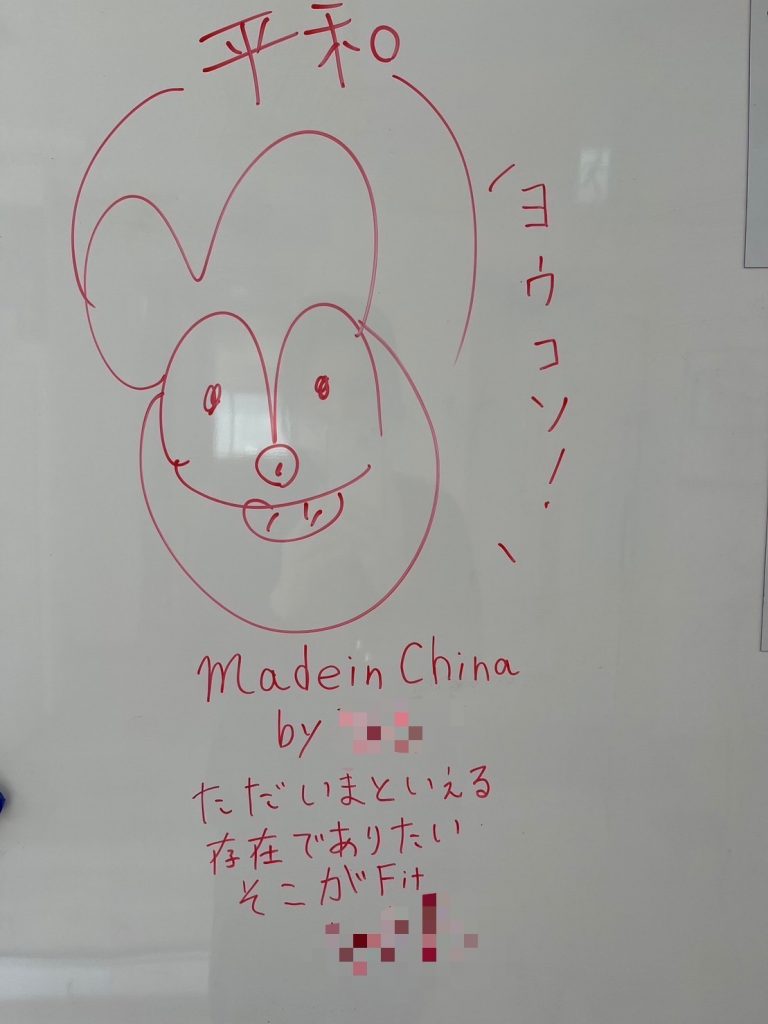 平和。
ヨウコソ!
Madein China
by
ただいまといえる
存在でありたい
そこがFit